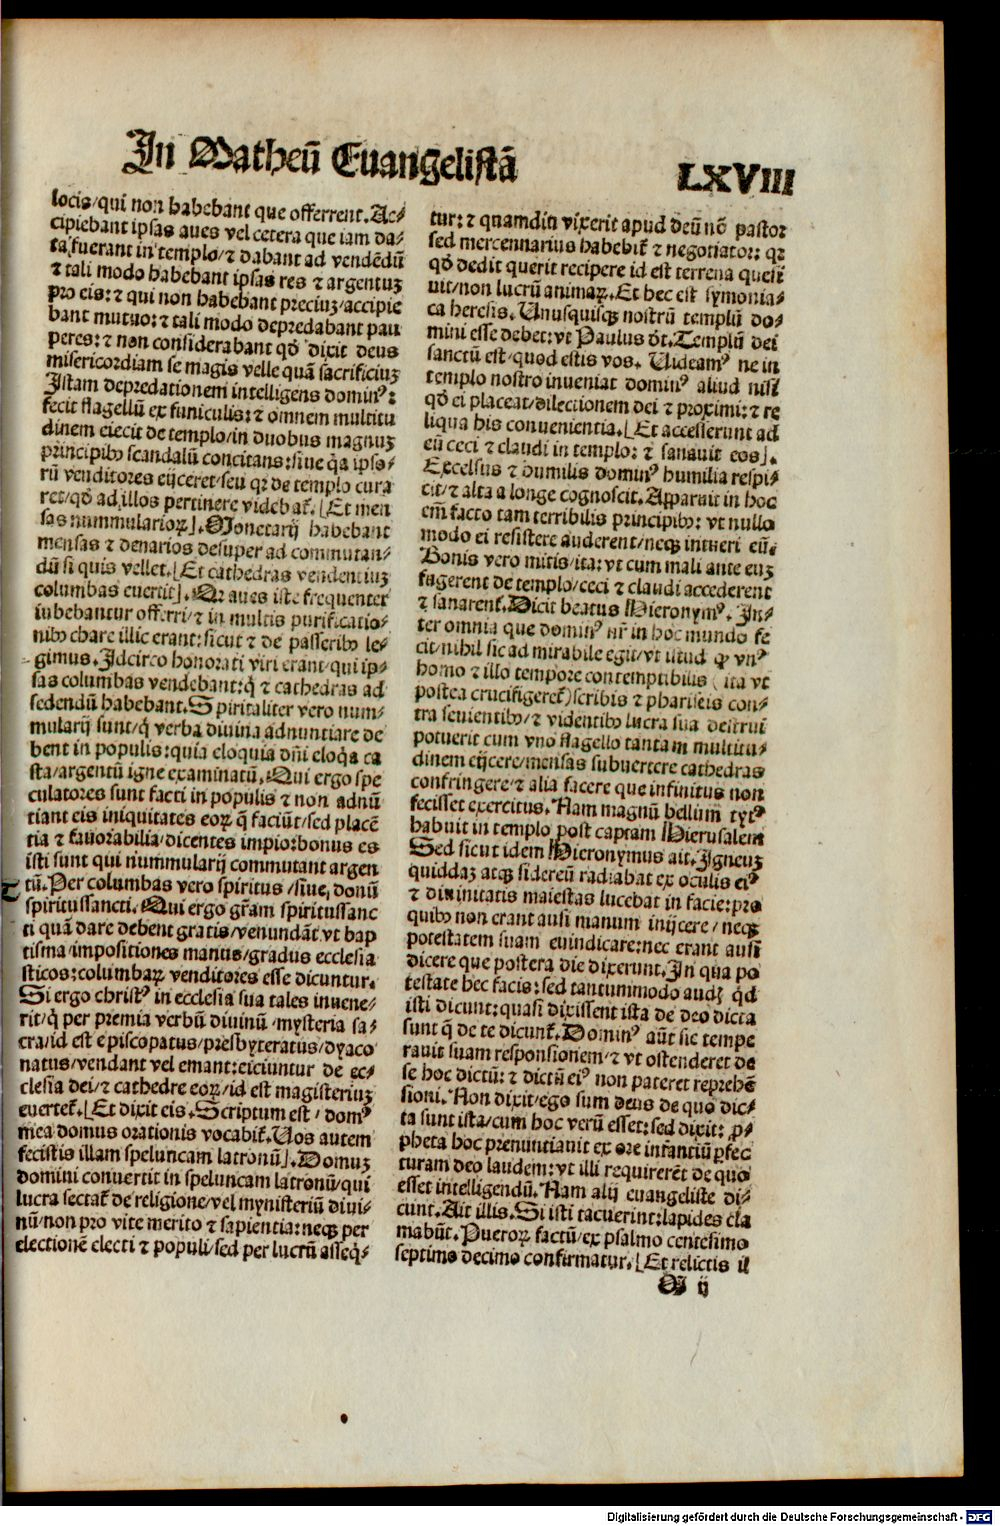 In Matheū Euangelistā
LXVIII
locis/qui non habebant que offerrent. Ac⸗
cipiebant ipsas aues vel cetera que iam da⸗
ta fuerant in templo/⁊ dabant ad vendēdū
⁊ tali modo habebant ipsas res ⁊ argentuꝫ
pro eis: ⁊ qui non habebant preciuꝫ/accipie
bant mutuo: ⁊ tali modo depredabant pau
peres: ⁊ non considerabant qd̄ dixit deus
misericordiam se magis velle quā sacrificiuꝫ
Istam depredationem intelligens dominꝰ:
fecit flagellū ex funiculis: ⁊ omnem multitu
dinem eiecit de templo/in duobus magnuꝫ
principibꝰ scandalū concitans: siue q̇a ipso⸗
rū venditores eijceret/seu qꝛ de templo cura
ret/qd̄ ad illos pertinere videbat̄. [Et men
sas nummularioꝝ]. Monetarij habebant
mensas ⁊ denarios desuper ad commutan⸗
dū si quis vellet. [Et cathedras vendentiuꝫ
columbas euertit]. Qꝛ aues iste frequenter
iubebantur offerri/⁊ in multis purificatio⸗
nibꝰ chare illic erant: sicut ⁊ de passeribꝰ le⸗
gimus. Idcirco honorati viri erant/qui ip⸗
sas columbas vendebant: q̇ ⁊ cathedras ad
sedendū habebant. Spiritaliter vero num⸗
mularij sunt/q̇ verba diuina adnuntiare de
bent in populis: quia eloquia dn̄i eloq̇a ca
sta/argentū igne examinatū. Qui ergo spe
culatores sunt facti in populis ⁊ non adnū
tiant eis iniquitates eoꝝ q̄ faciūt/sed placē
tia ⁊ fauorabilia/dicentes impiorbonus es
isti sunt qui nummularij commutant argen
tū. Per columbas vero spiritus /siue, donū
spiritussancti. Qui ergo gr̄am spiritussanc
ti quā dare debent gratis/venundāt vt bap
tisma/impositiones manus/gradus ecclesia
sticos: columbaꝝ venditores esse dicuntur.
Si ergo christꝰ in ecclesia sua tales inuene⸗
rit/q̇ per premia verbū diuinū /mysteria sa⸗
cra/id est episcopatus/presbyteratus/dyaco
natus/vendant vel emant: eiciuntur de ec⸗
clesia dei/⁊ cathedre eoꝝ/id est magisteriuꝫ
euertet̄. [Et dixit eis. Scriptum est / domꝰ
mea domus orationis vocabit̄. Uos autem
fecistis illam speluncam latronū]. Domuꝫ
domini conuertit in speluncam latronū/qui
lucra sectat̄ de religione/vel mynisteriū diui⸗
nū/non pro vite merito ⁊ sapientia: neqꝫ per
electionē electi ⁊ populi/sed per lucrū asseq̇⸗
tur: ⁊ quamdiu vixerit apud deū nō pastor
sed mercennarius habebit̄ ⁊ negotiator: qꝛ
qd̄ dedit querit recipere id est terrena quesi
uit/non lucrū animaꝝ. Et hec est symonia⸗
ca heresis. Unusquisqꝫ nostrū templū do⸗
mini esse debet: vt Paulus dt̄. Templū dei
sanctū est/quod estis vos. Uideamꝰ ne in
templo nostro inueniat dominꝰ aliud nisi
qd̄ ei placeat/dilectionem dei ⁊ proximi: ⁊ re
liqua his conuenientia. [Et accesserunt ad
eū ceci ⁊ claudi in templo: ⁊ sanauit eos].
Excelsus ⁊ humilis dominꝰ humilia respi⸗
cit/⁊ alta a longe cognoscit. Apparuit in hoc
em̄ facto tam terribilis principibꝰ: vt nullo
modo ei resistere auderent/neqꝫ intueri eū.
Bonis vero mitis/ita: vt cum mali ante euꝫ
fugerent de templo/ceci ⁊ claudi accederent
⁊ sanarent̄. Dicit beatus Hieronymꝰ. In⸗
ter omnia que dominꝰ nr̄ in hoc mundo fe
cit/nihil sic ad mirabile egit/vt istud ꝙ vnꝰ
homo ⁊ illo tempore contemptibilis (ita vt
postea crucifigeret̄) scribis ⁊ phariseis con⸗
tra seuientibꝰ/⁊ videntibꝰ lucra sua destrui
potuerit cum vno flagello tantam multitu⸗
dinem eijcere/mensas subuertere cathedras
confringere/⁊ alia facere que infinitus non
fecisset exercitus. Nam magnū bellum tytꝰ
habuit in templo post captam Hierusalem
Sed sicut idem Hieronymus ait. Igneuꝫ
quiddaꝫ atqꝫ sidereū radiabat ex oculis eiꝰ
⁊ diuinitatis maiestas lucebat in facie: pro
quibꝰ non erant ausi manum inijcere / neqꝫ
potestatem suam euindicare: nec erant ausi
dicere que postera die dixerunt. In qua po
testate hec facis: sed tantummodo audꝫ qd̄
isti dicunt: quasi dixissent ista de deo dicta
sunt q̄ de te dicunt̄. Dominꝰ aūt sic tempe
rauit suam responsionem/⁊ vt ostenderet de
se hoc dictū: ⁊ dictū eiꝰ non pateret reprehē
sioni. Non dixit/ego sum deus de quo dic⸗
ta sunt ista/cum hoc verū esset: sed dixit: ꝓ⸗
pheta hoc prenuntiauit ex ore infantiū ꝑfec
turam deo laudem: vt illi requirerēt de quo
esset intelligendū. Nam alij euangeliste di⸗
cunt. Ait illis. Si isti tacuerint: lapides cla
mabūt. Pueroꝝ factū/ex psalmo centesimo
septimo decimo confirmatur. [Et relictis il
M ij
Digitalisierung gefördert durch die Deutsche Forschungsgemeinschaft - DFG